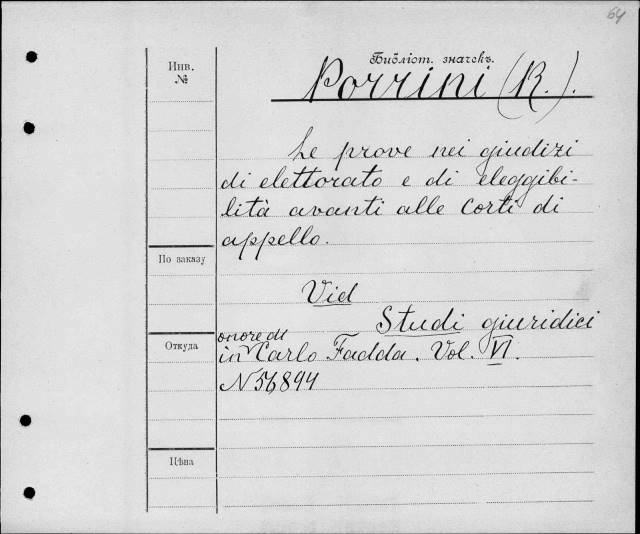 64
Инв.
№
Библіот. значекъ.
Porrini (R.).
Le prove nei giudizi
di elettorato e di eleggibi-
lità avanti alle Corti di
appello.
По заказу
Vid
Studi giuridici
Откуда
onore di
in Carlo Fadda. Vol. VI.
N 56,894
Цѣна